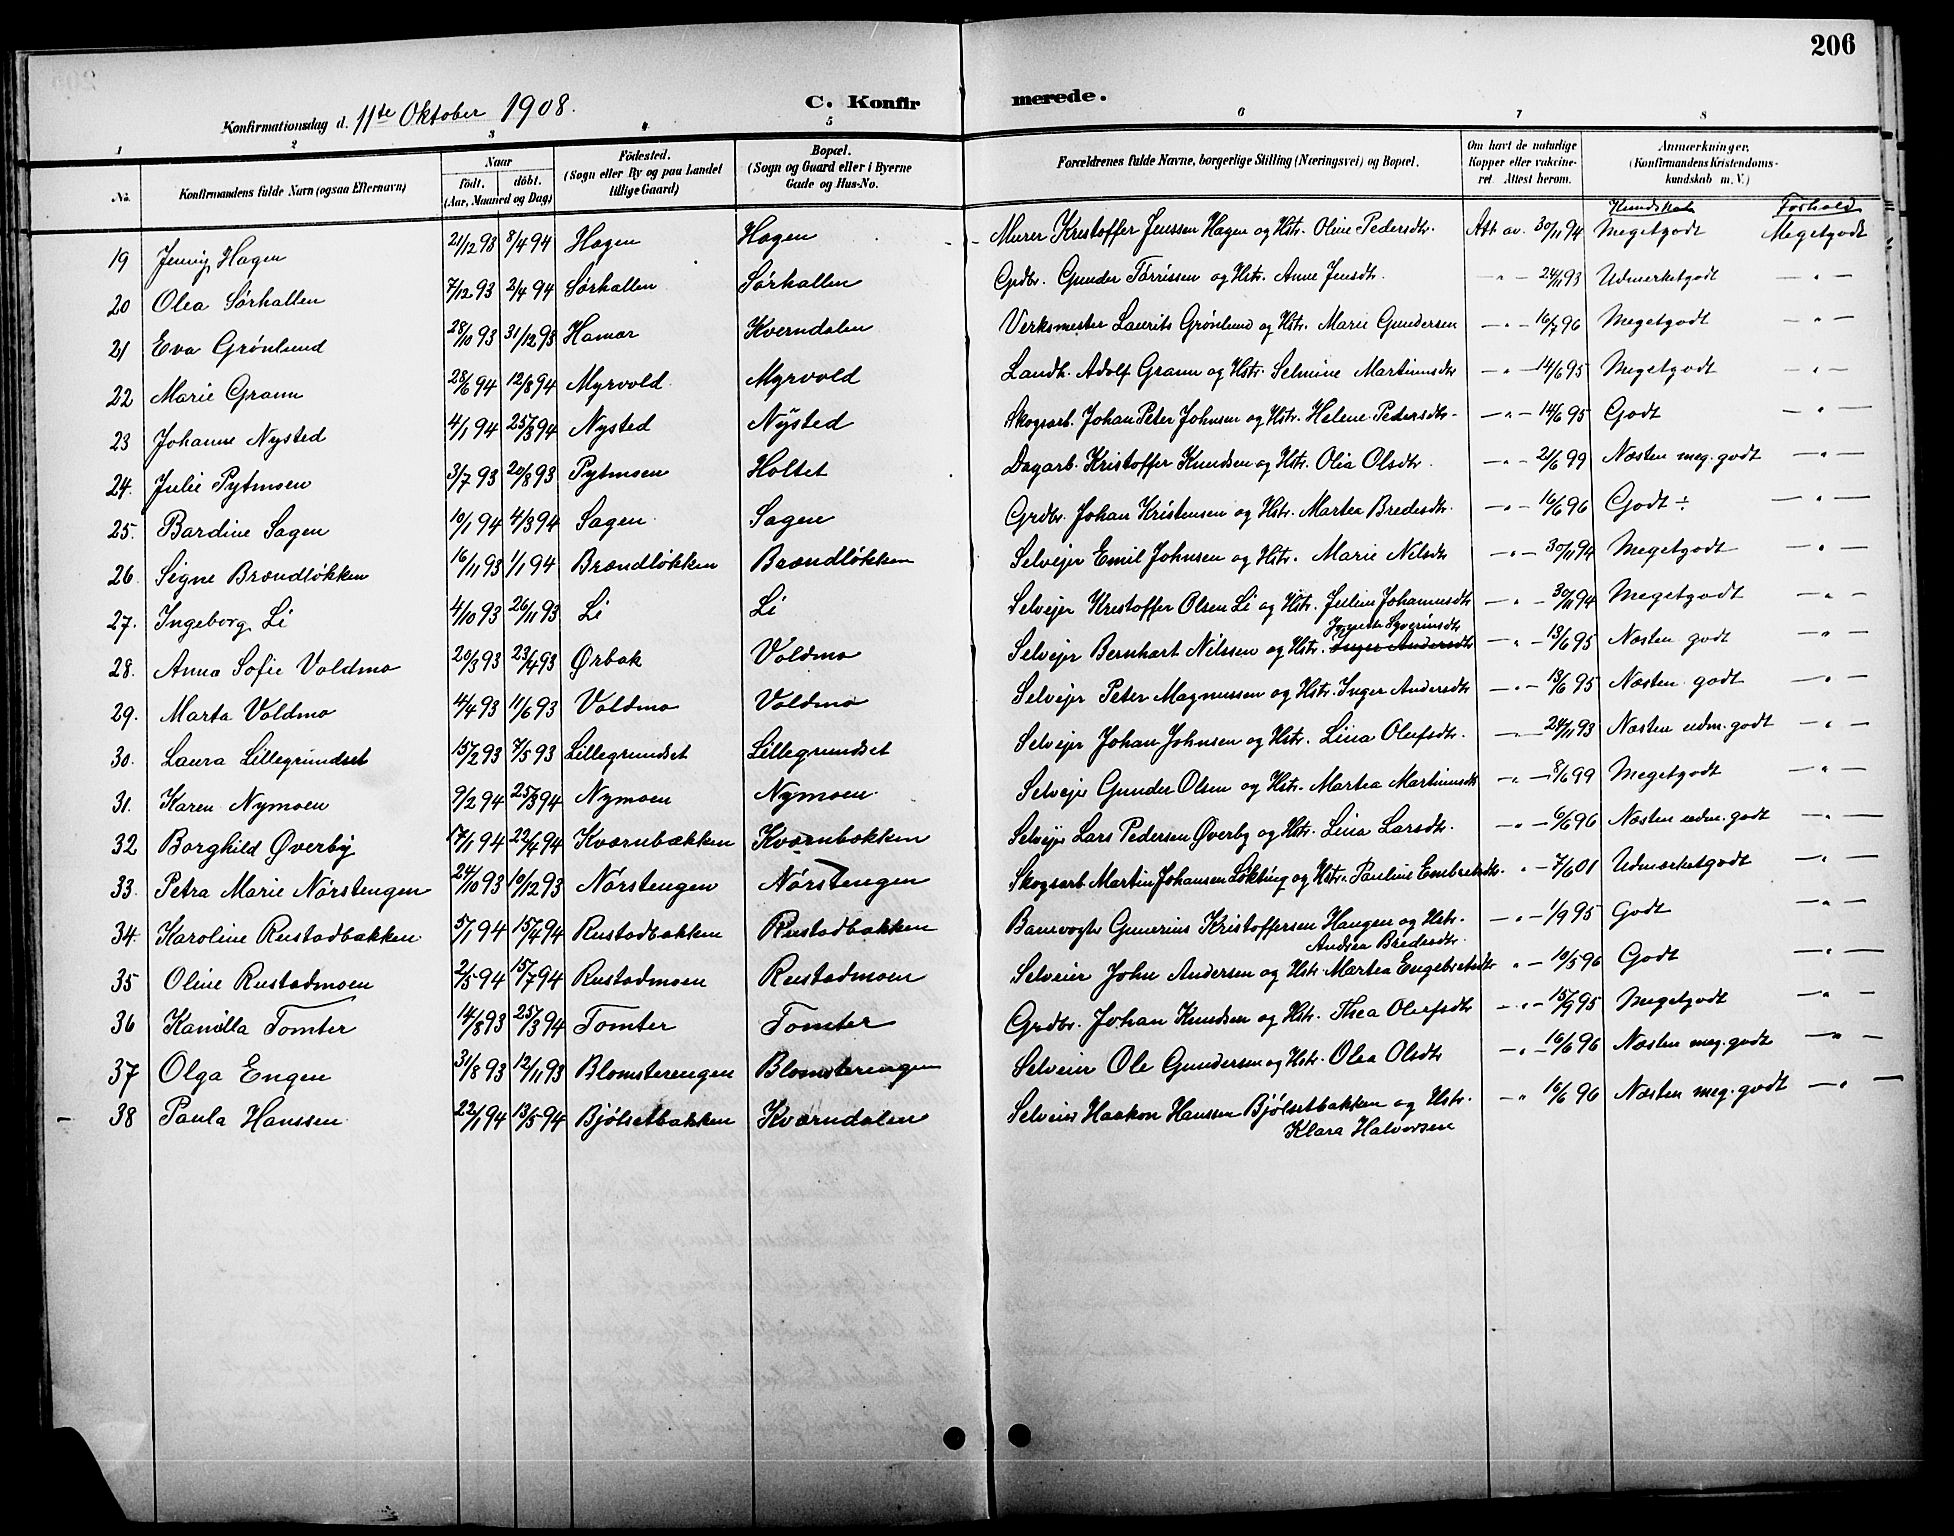 206
C. Konfirmerede.
Konfirmationsdag d. 11te Oktober 1908.
1 2 3 4 5 6 7 8
No. Konfirmandens fulde Navn (ogsaa Efternavn) Naar født. døbt. (Aar, Maaned og Dag) Fødested. (Sogn eller By og paa Landet tillige Gaard) Bopæl. (Sogn og Gaard eller i Byerne Gade og Hus-No. Forældrenes fulde Navne, borgerlige Stilling (Næringsvei) og Bopæl. Om havt de naturlige Kopper eller vakcineret. Attest herom. Anmærkninger, (Konfirmandens Kristendomskundskab m. V.)
Kundskab Forhold
19 Jenny Hagen 21/12 93 8/4 94 Hagen Hagen Murer Kristoffer Jenssen Hagen og Hstr. Oline Pedersdtr. Att av. 30/11 94 Megetgodt Megetgodt
20 Olea Sørhallen 7/12 93 2/4 94 Sørhallen Sørhallen Grdbr. Gunder Tørrissen og Hstr. Anne Jensdtr. " - 24/11 93 Udmerketgodt — " —
21 Eva Grønlund 28/10 93 31/12 93 Hamar Kverndalen Verksmester Laurits Grønlund og Hstr. Marie Gundersen — " — 16/7 96 Megetgodt — " —
22 Marie Grann 28/6 94 12/8 94 Myrvold Myrvold Landh. Adolf Grann og Hstr. Selmine Martinusdtr — " — 14/6 95 Megetgodt — " —
23 Johanne Nysted 4/1 94 25/3 94 Nysted Nysted Skogsarb. Johan Peter Johnsen og Hstr. Helene Pedersdtr. — " — 14/6 95 Godt — " —
24. Julie Pytmoen 3/7 93 20/8 93 Pytmoen Holtet Dagarb. Kristoffer Knudsen og Hstr. Olia Olsdtr. — " — 21/6 99 Næsten meg. godt — " —
25. Bardine Sagen 10/1 94 4/3 94 Sagen Sagen Grdbr. Johan Kristensen og Hstr. Martea Bredesdtr. — " — 16/6 96 Godt ÷ — " —
26. Signe Brændløkken 16/11 93 1/1 94 Brændløkken Brændløkken Selveier Emil Johnsen og Hstr. Marie Nilsdtr — " — 30/11 94 Megetgodt — " —
27. Ingeborg Li 4/10 93 26/11 93 Li Li Selveier Kristoffer Olsen Li og Hstr. Juline Johannesdtr — " — 30/11 94 Megetgodt — " —
28. Anna Sofie Voldmo 20/3 93 23/4 93 Ørbak Voldmo Selveier Bernhart Nilssen og Hstr. Inger Andersdtr Syverinsdtr — " — 13/6 95 Næsten godt — " —
29. Marta Voldmo 4/4 93 11/6 93 Voldmo Voldmo Selveier Peter Magnussen og Hstr. Inger Andersdtr — " — 13/6 95 Næsten godt — " —
30. Laura Lillegrundset 15/2 93 7/5 93 Lillegrundset Lillegrundset Selveier Johan Johnsen og Hstr. Lina Olufsdtr. — " — 24/11 93 Næsten udm. godt — " —
31. Karen Nymoen 9/2 94 25/3 94 Nymoen Nymoen Selveier Gunder Olsen og Hstr. Martea Martinusdtr — " — 8/6 99 Megetgodt — " —
32 Borghild Øverby 17/1 94 22/4 94 Kværnbækken Kværnbækken Selveier Lars Pedersen Øverby og Hstr. Lina Larsdtr. — " — 6/6 96 Næsten udm. godt — " —
33. Petra Marie Nørstengen 24/10 93 10/12 93 Nørstengen Nørstengen Skogsarb Martin Johansen Løkting og Hstr. Pauline Embretsdtr. " — 7/6 01 Udmærketgodt — " —
34. Karoline Rustadbakken 5/1 94 15/4 94 Rustadbakken Rustadbakken Banevogter Gunerius Kristoffersen Haugen og Hstr. Andrea Bredesdtr. — " — 1/9 95 Godt — " —
35 Oline Rustadmoen 2/5 94 15/7 94 Rustadmoen Rustadmoen Selveier John Andersen og Hstr Martea Engebretsdtr " — 10/5 96 Godt — " —
36 Kamilla Tomter 14/8 93 25/3 94 Tomter Tomter Grdbr. Johan Knudsen og Hstr. Thea Olufsdtr — " — 15/9 95 Megetgodt — " —
37 Olga Engen 31/8 93 12/11 93 Blomsterengen Blomsterengen Selveier Ole Gundersen og Hstr. Olea Olsdtr — " — 16/6 96 Næsten meg. godt — " —
38 Paula Hanssen 22/1 94 13/5 94 Bjølsetbakken Kværndalen Selveier Haakon Hanssen Bjølsetbakken og Hstr. Klara Halvorsen — " 16/6 96 Næsten meg. godt — " —